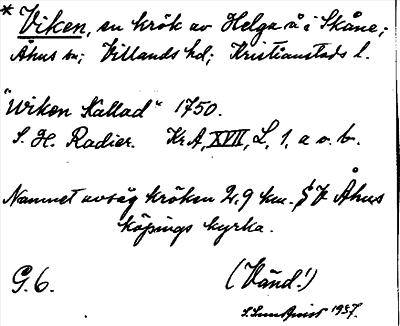 * Viken, en krök av Helga å i Skåne;
Åhus sn; Villands hd; Kristianstads l.
"Wiken Kallad" 1750.
S. H. Radier. Kr.A, XVII, L, 1, a o. b.
Namnet avsåg kröken 2,9 km. V Åhus
köpings kyrka.
G. 6. (Vänd!)
1937.